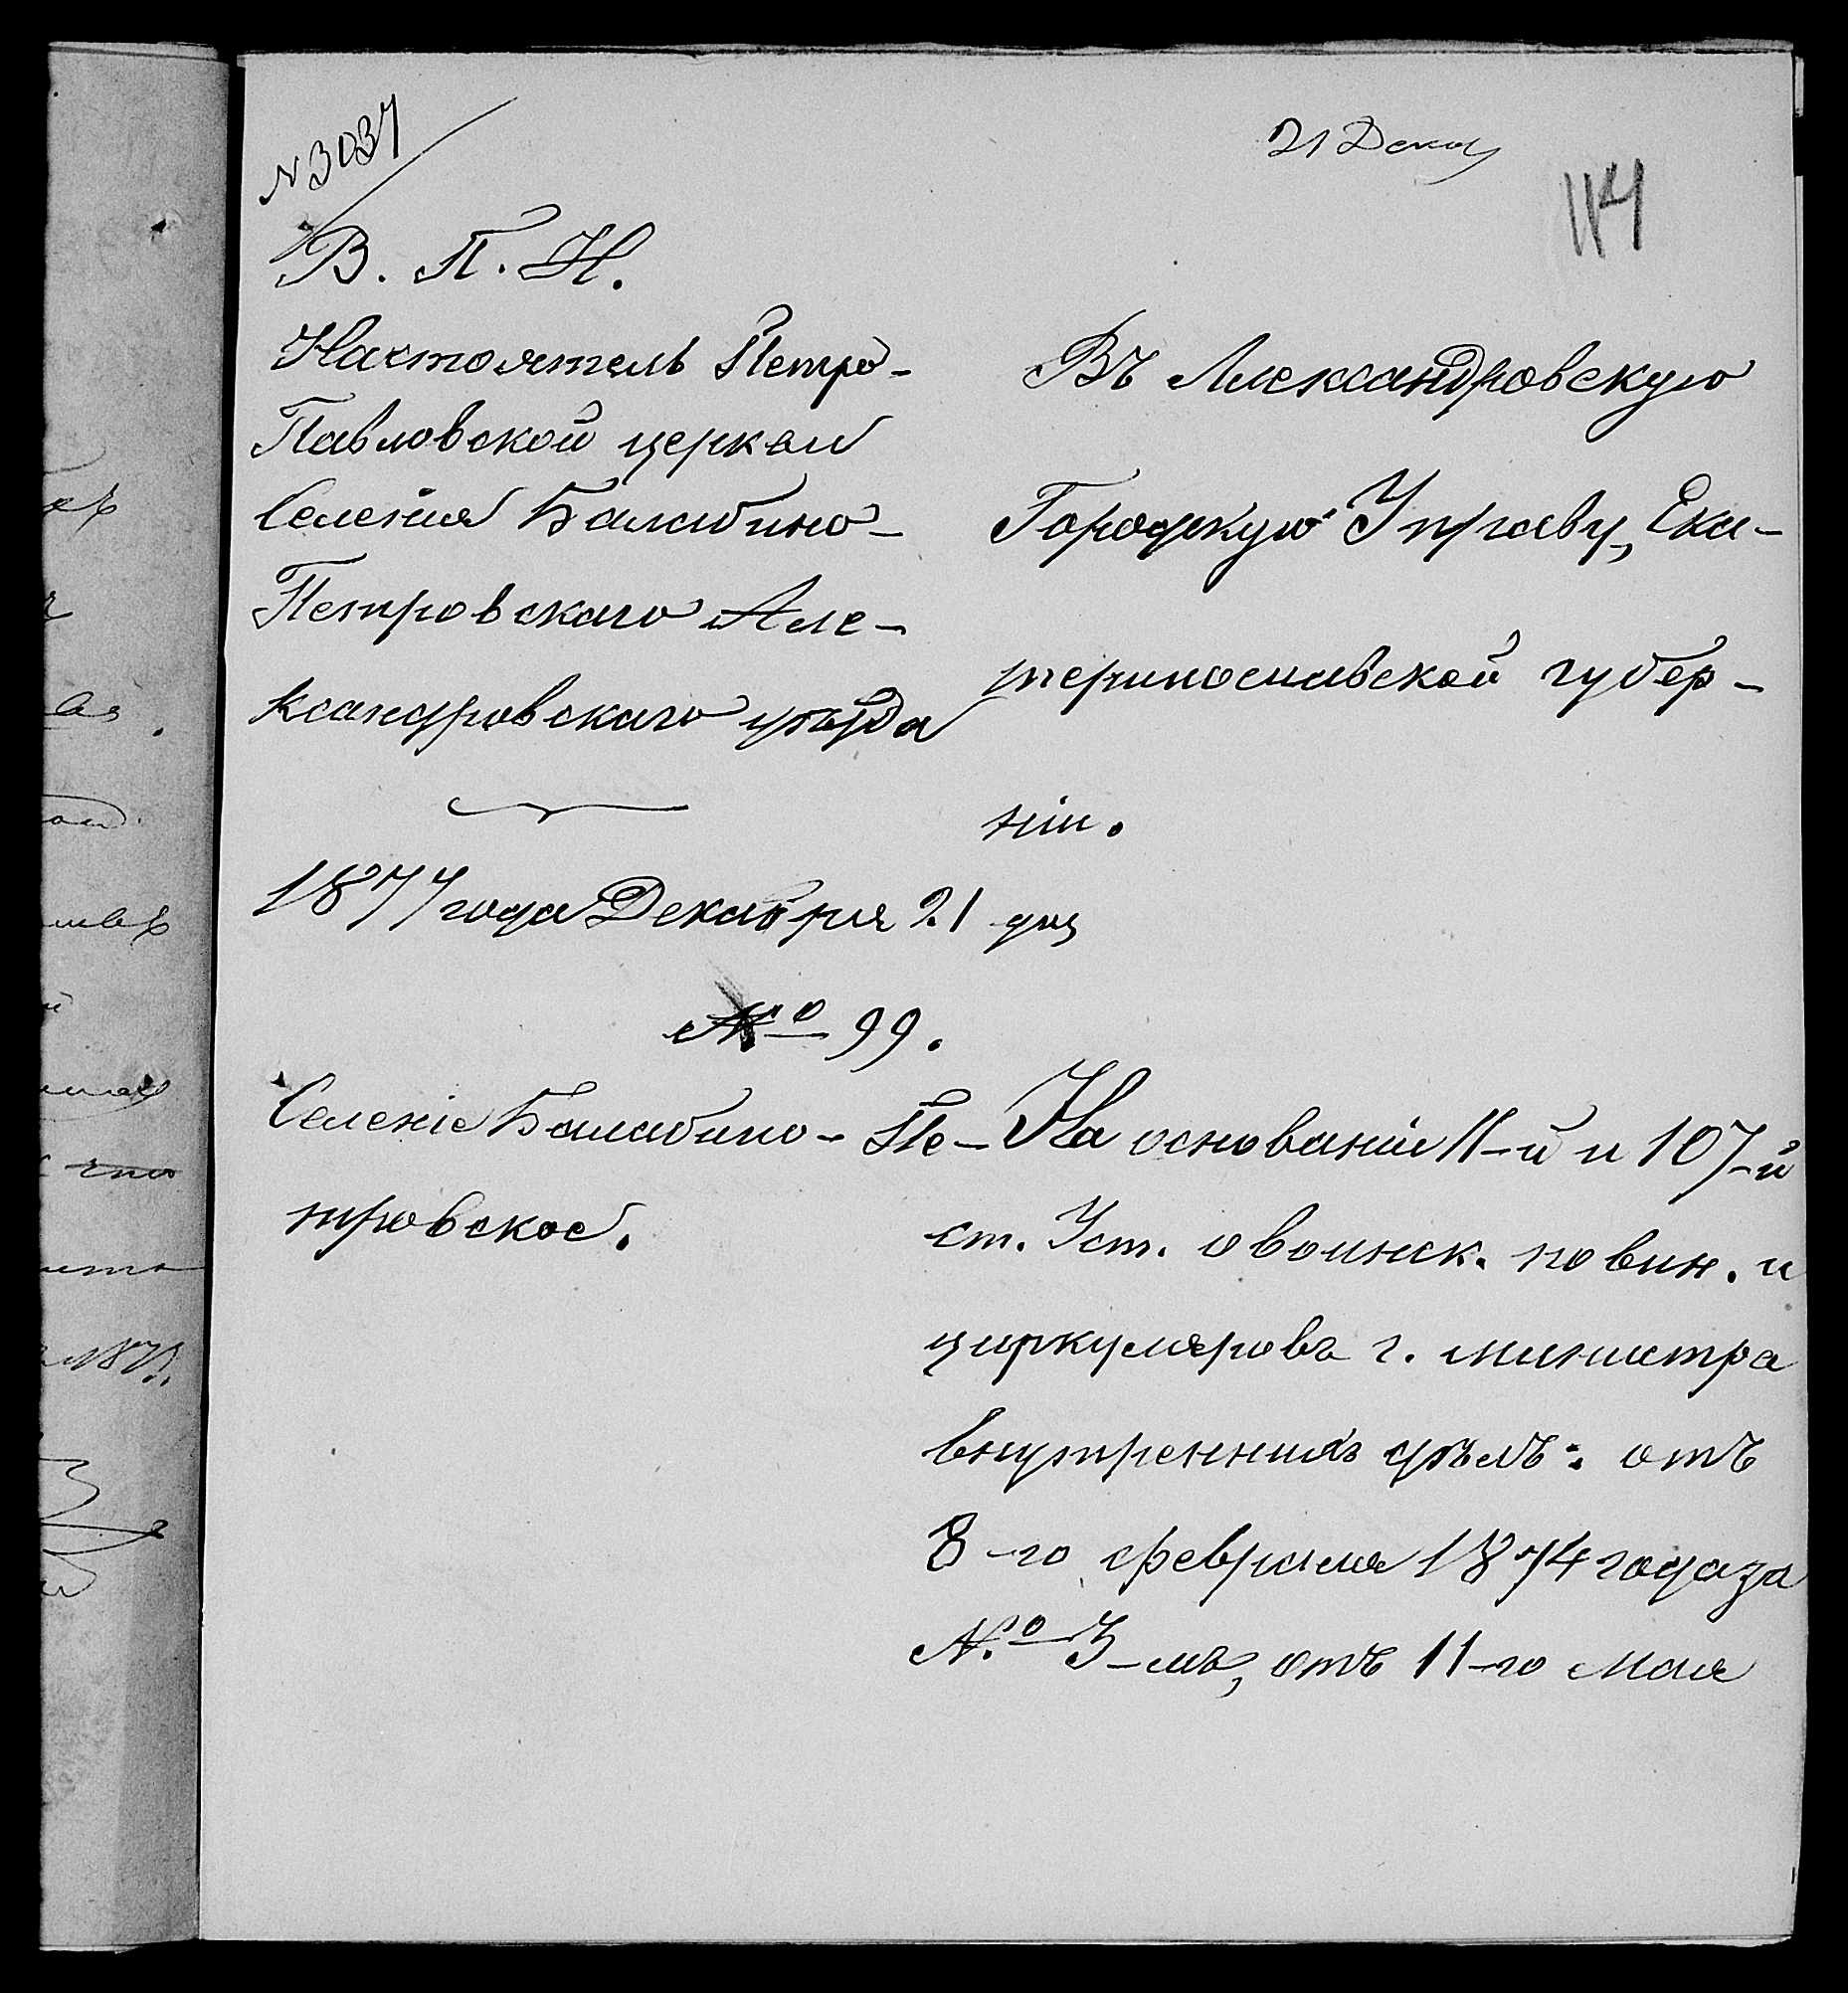 № 3037
21 Дека
114
В. П. И.
Настоятель Петро-
Павловской церкви
Селенія Балабино-
Петровскаго Але-
ксандровскаго уѣзда
1877 года Декабря 21 дня
№ 99.
Селеніе Балабино-Пе-
тровское.
Въ Александровскую
Городскую Управу, Ека-
теринославской губер-
ніи.
На основаніи 11-й и 107-й
ст. Уст. о воинск. повин. и
циркуляровъ г. министра
внутреннихъ дѣлъ: отъ
8-го февраля 1874 года за
№ 3-мъ, отъ 11-го мая